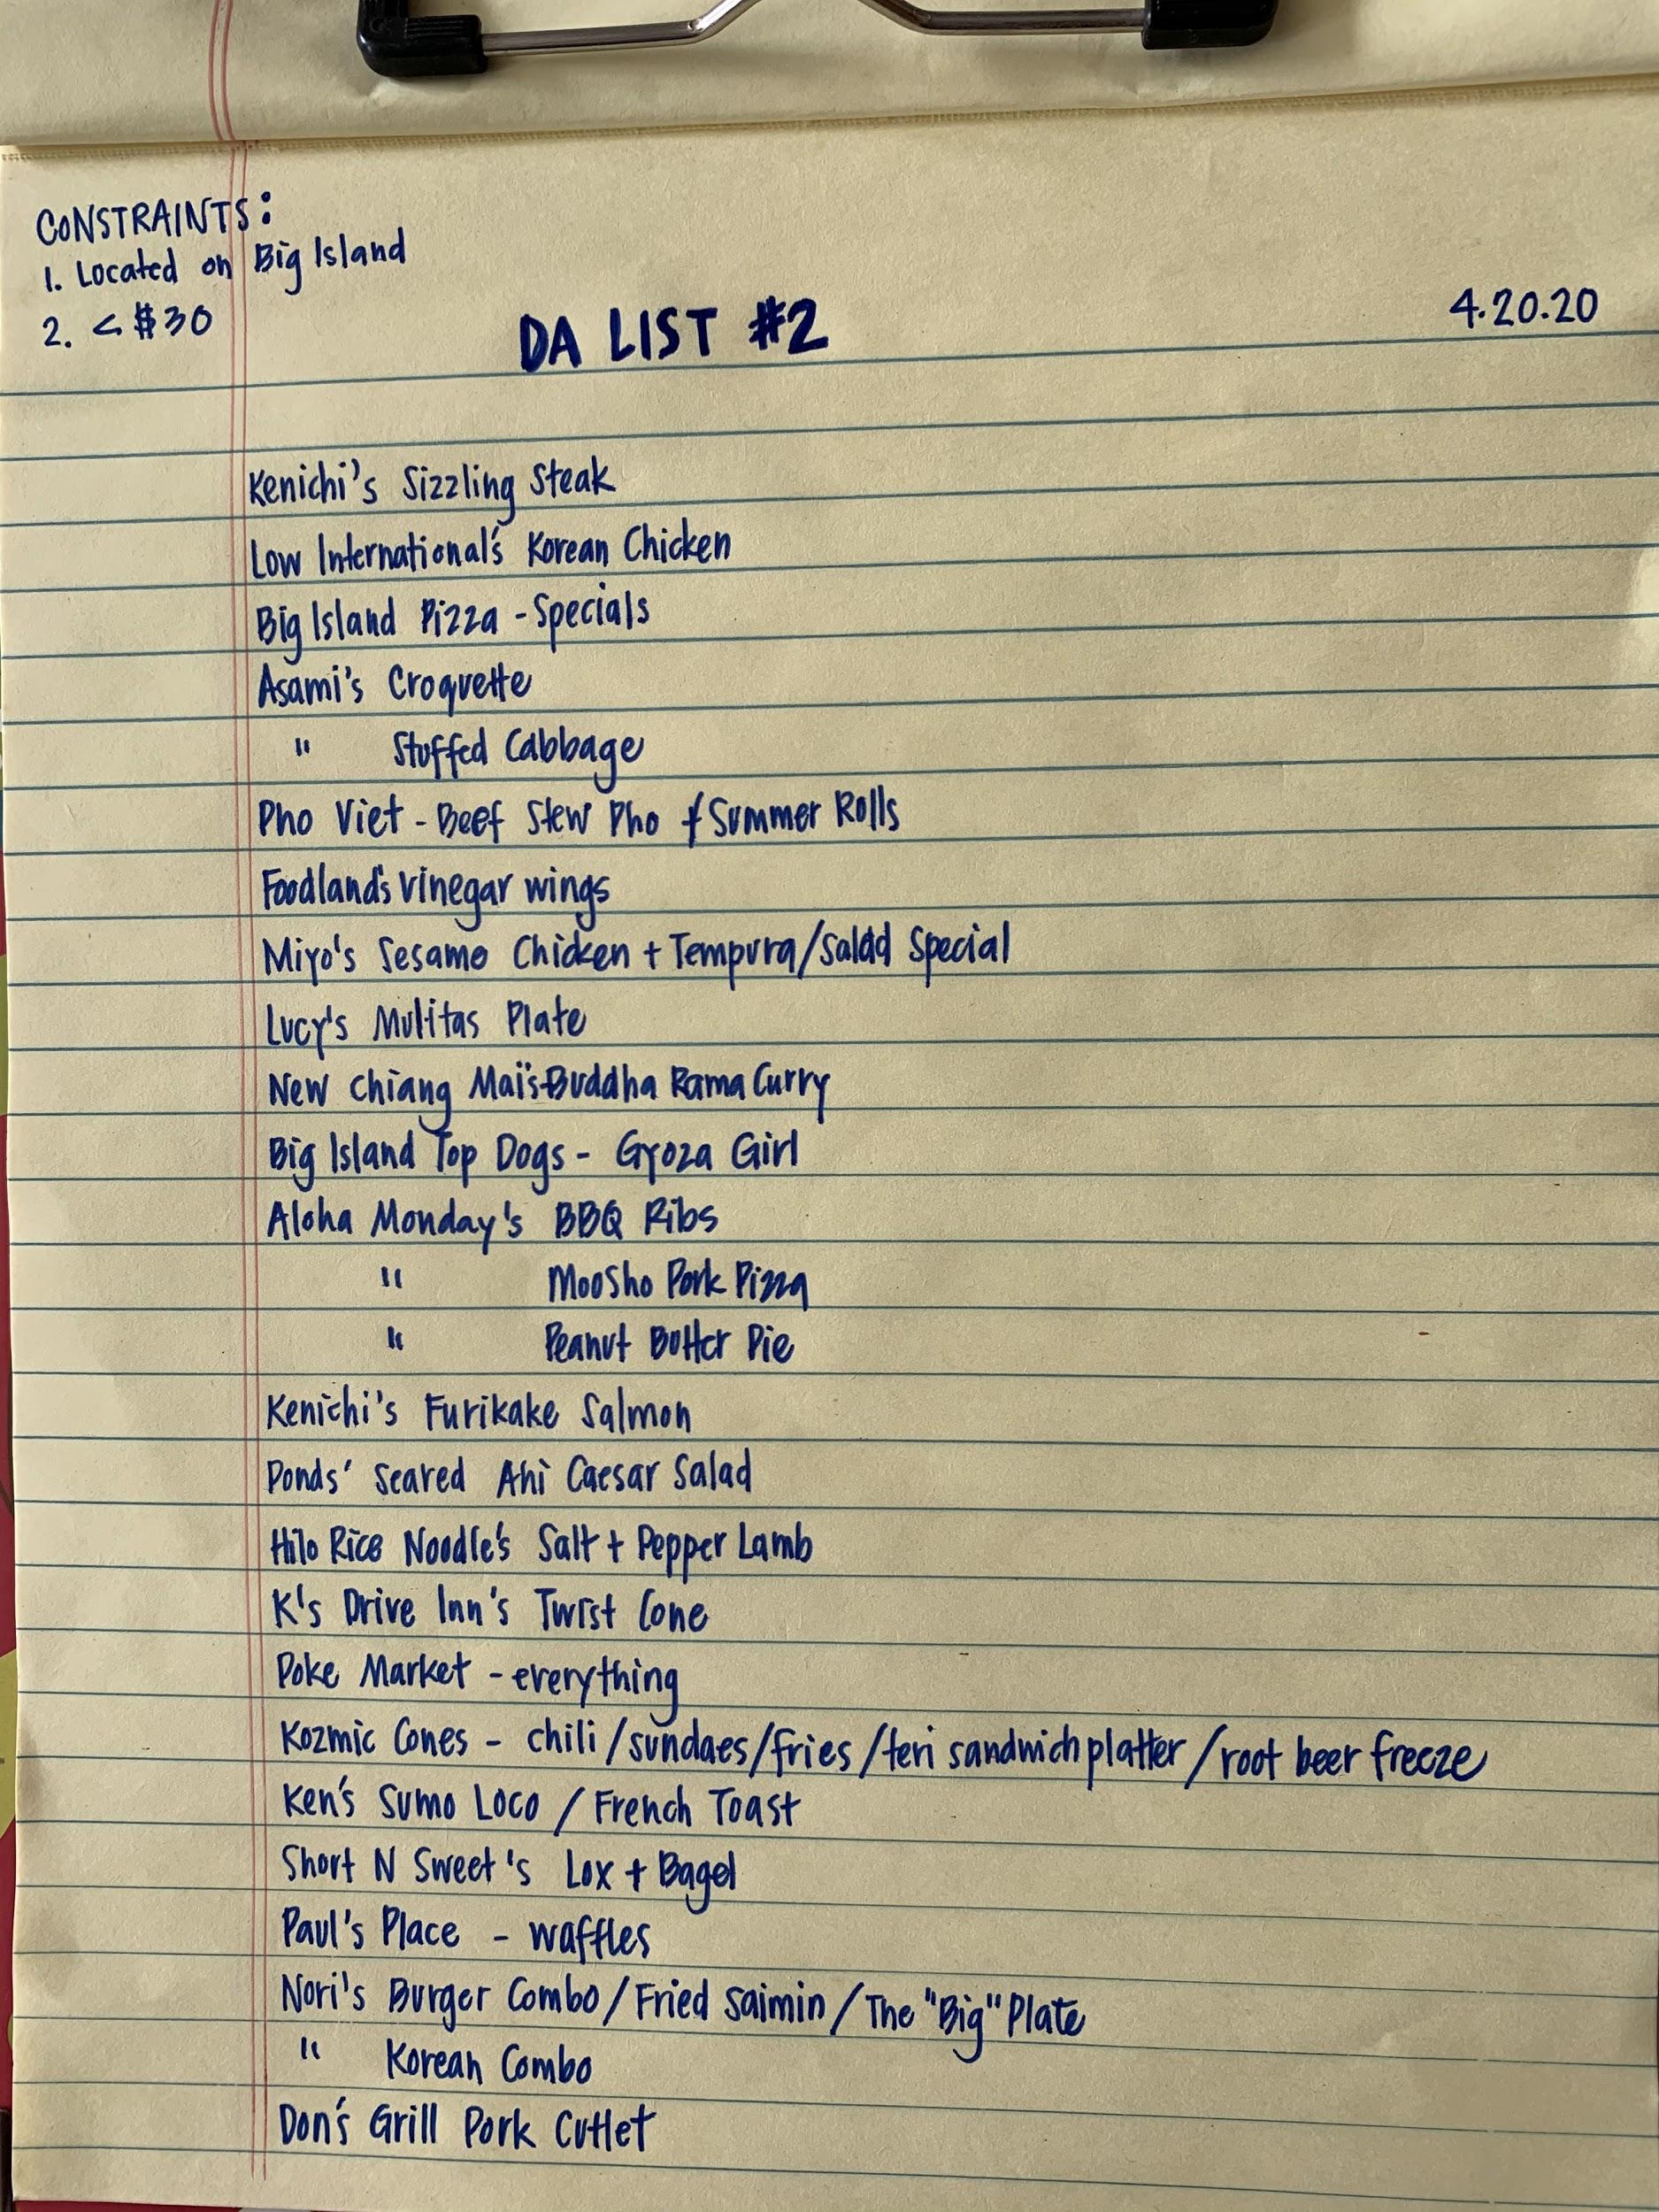 CONSTRAINTS:
1. Located on Big Island
2. < $30
DA LIST #2
4.20.20
Kenichi's Sizzling Steak
Low International's Korean Chicken
Big Island Pizza - Specials
Asami's Croquette
" Stuffed Cabbage
Pho Viet - Beef Stew Pho & Summer Rolls
Foodland's vinegar wings
Miyo's Sesame Chicken + Tempura/Salad Special
Lucy's Mulitas Plate
New Chiang Mai's Buddha Rama Curry
Big Island Top Dogs - Gyoza Girl
Aloha Monday's BBQ Ribs
" MooSho Pork Pizza
" Peanut Butter Pie
Kenichi's Furikake Salmon
Ponds' Seared Ahi Caesar Salad
Hilo Rice Noodle's Salt + Pepper Lamb
K's Drive Inn's Twist Cone
Poke Market - everything
Kozmic Cones - chili/sundaes/fries/teri sandwich platter/root beer freeze
Ken's Sumo Loco / French Toast
Short N Sweet's Lox + Bagel
Paul's Place - waffles
Nori's Burger Combo/Fried Saimin/The "Big" Plate
" Korean Combo
Don's Grill Pork Cutlet